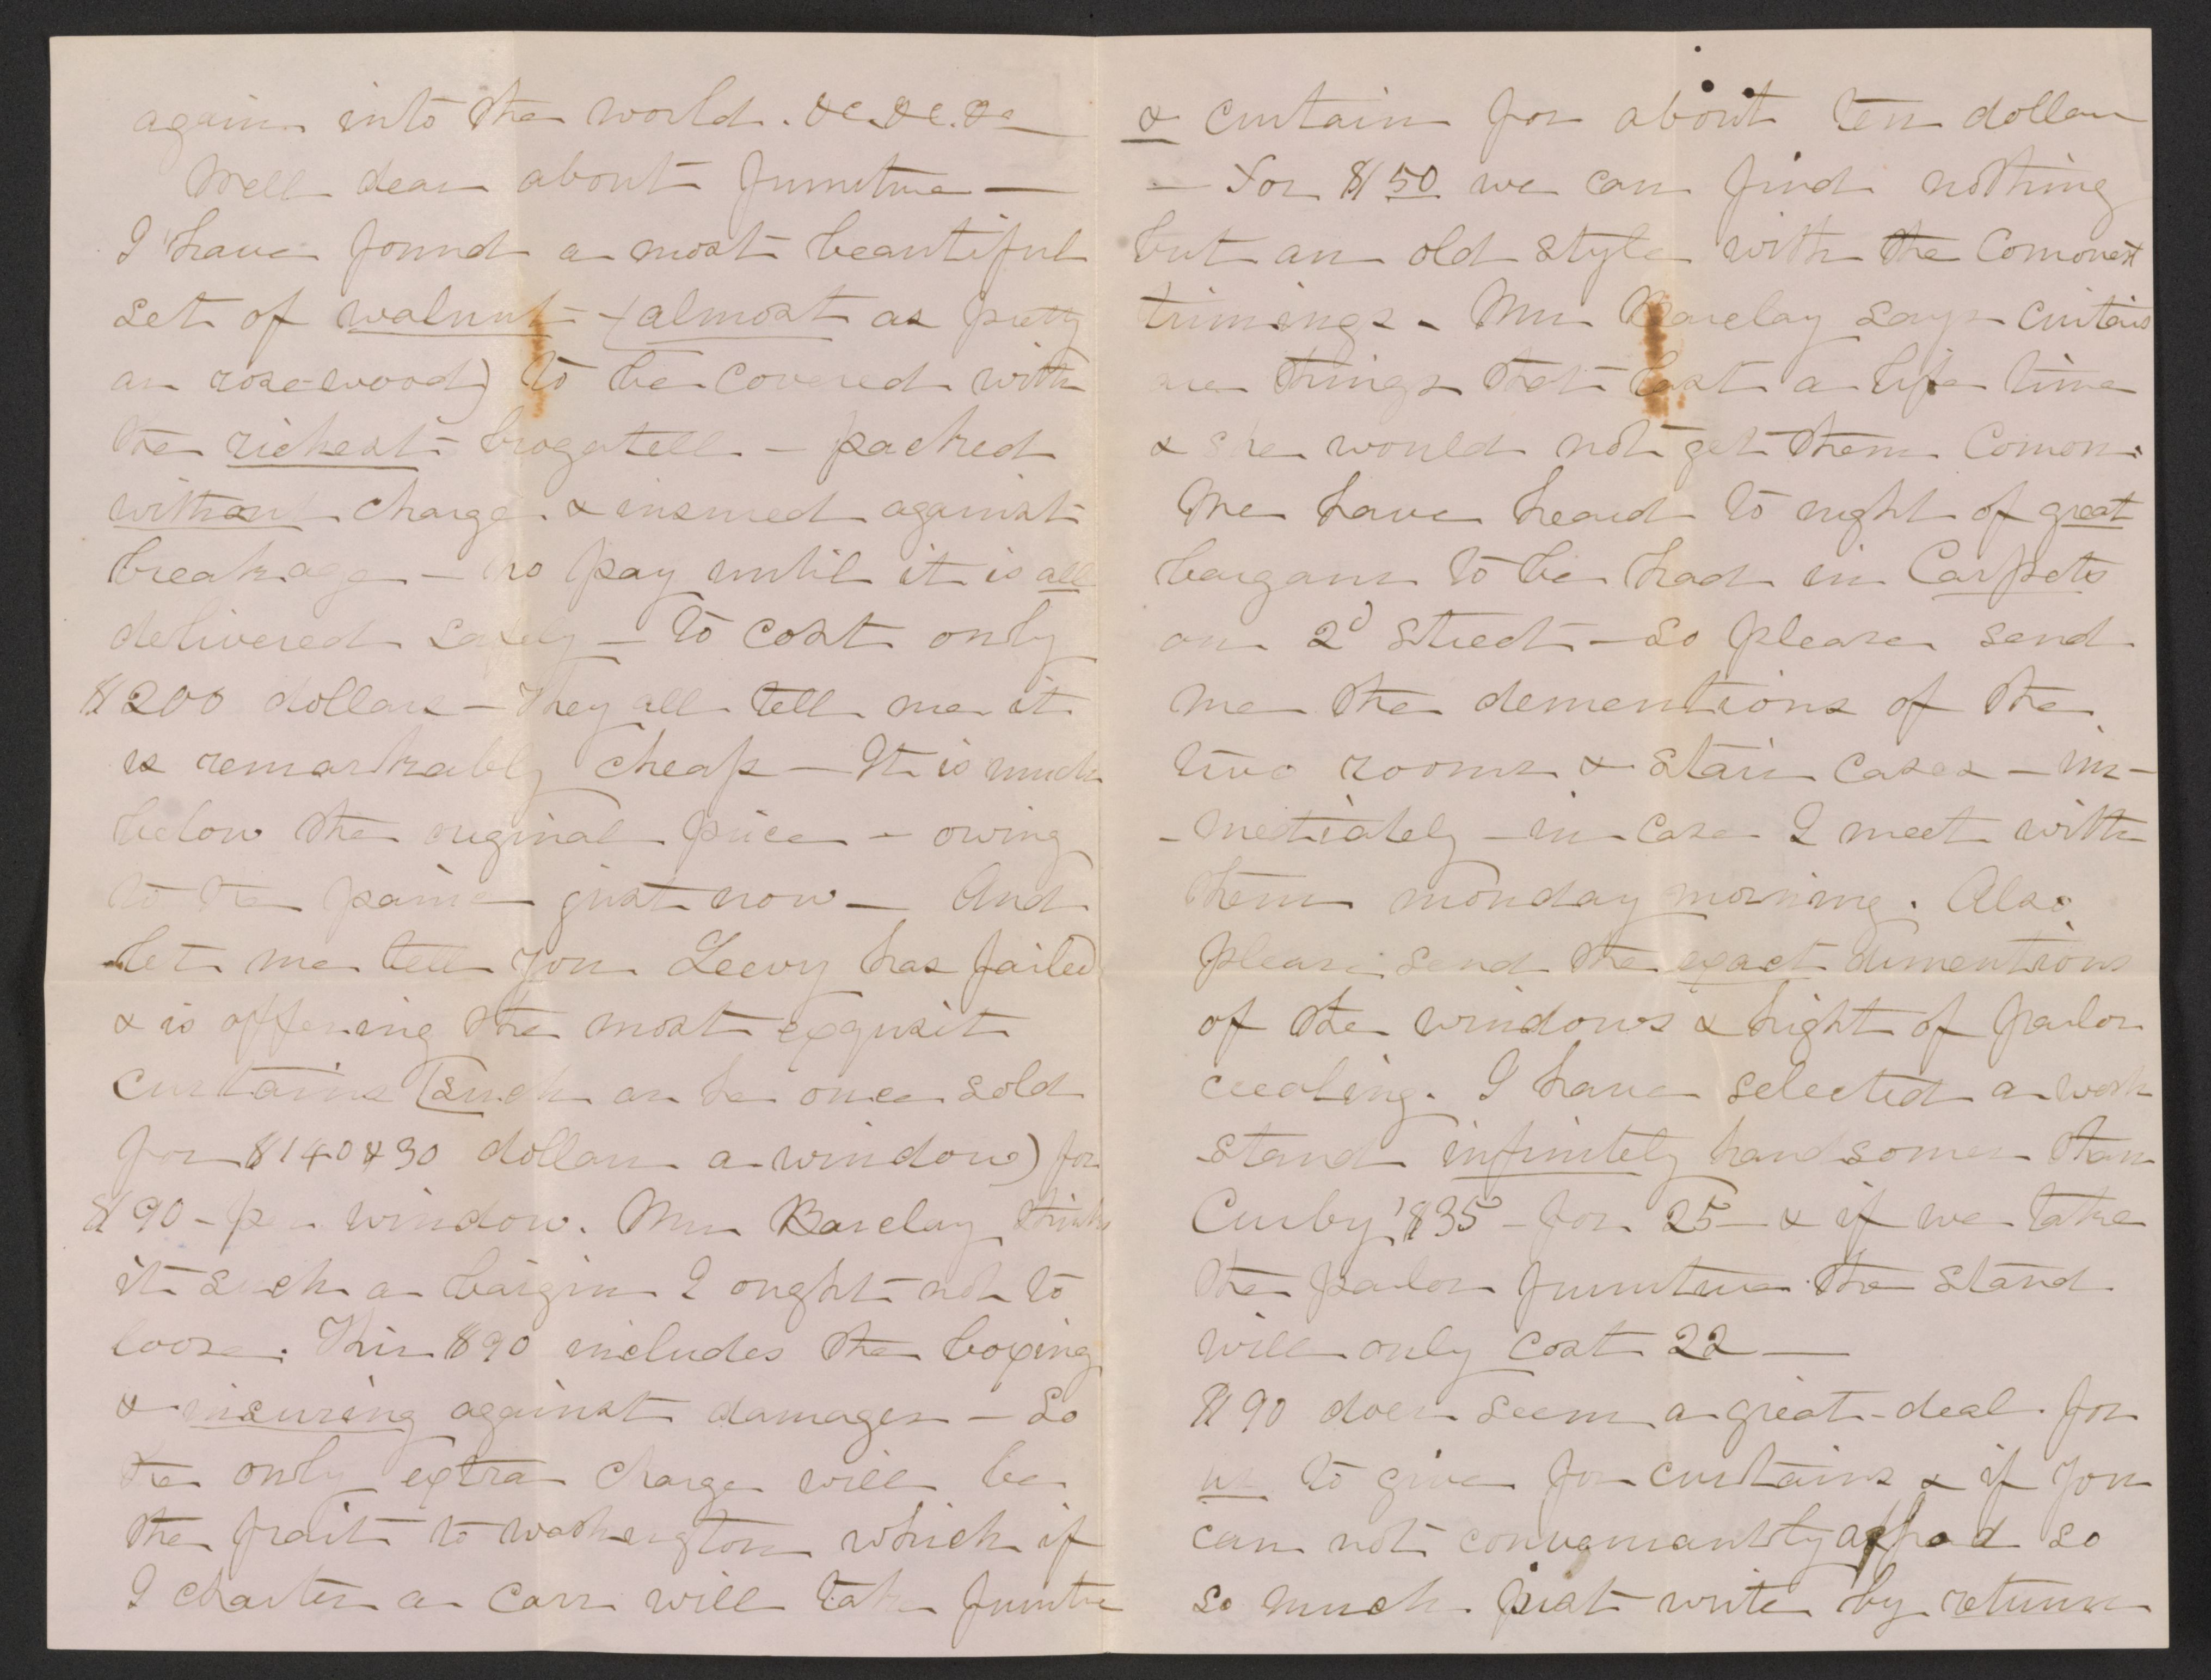 again into the world. &c. &c. &c
Well dear about furniture —
I have found a most beautiful
set of walnut – (almost as pretty
as rose-wood) to be covered with
the richest brogatell – packed
without charge & insured against
breakage – no pay until it is all
delivered safely – to cost only
$200 dollars – They all tell me it
is remarkably cheap – It is much
below the original price – owing
to the panic just now – And
let me tell you Leevy has failed
& is offering the most exquisit
curtains (such as he once sold
for $140 & 30 dollars a window) for
$90 – per window. Mrs Barclay thinks
it such a bargin I ought not to
loose. This $90 includes the boxing
& insuring against damages – So
the only extra charge will be
the frait to washington which if
I charter a carr will take furnitre
& curtains for about ten dollars
– For $50 we can find nothing
but an old style with the Comonest
trimings – Mrs Barclay says curtains
are things that last a life time
& she would not get them Comon.
We have heard to night of great
bargans to be had in Carpets
on 2d Street – so please send
me the dementions of the
two rooms & stair cases – im-
-mediately – in case I meet with
them monday morning. Also
please send the exact dimentions
of the windows & hight of parlor
ceeling. I have selected a wash
stand infinitely handsomer than
Curby's $35 – for 25 – & if we take
the parlor furniture the stand
will only cost 22 —
$90 does seem a great-deal for
us to give for curtains & if you
can not convemantly afford so
so much just write by return